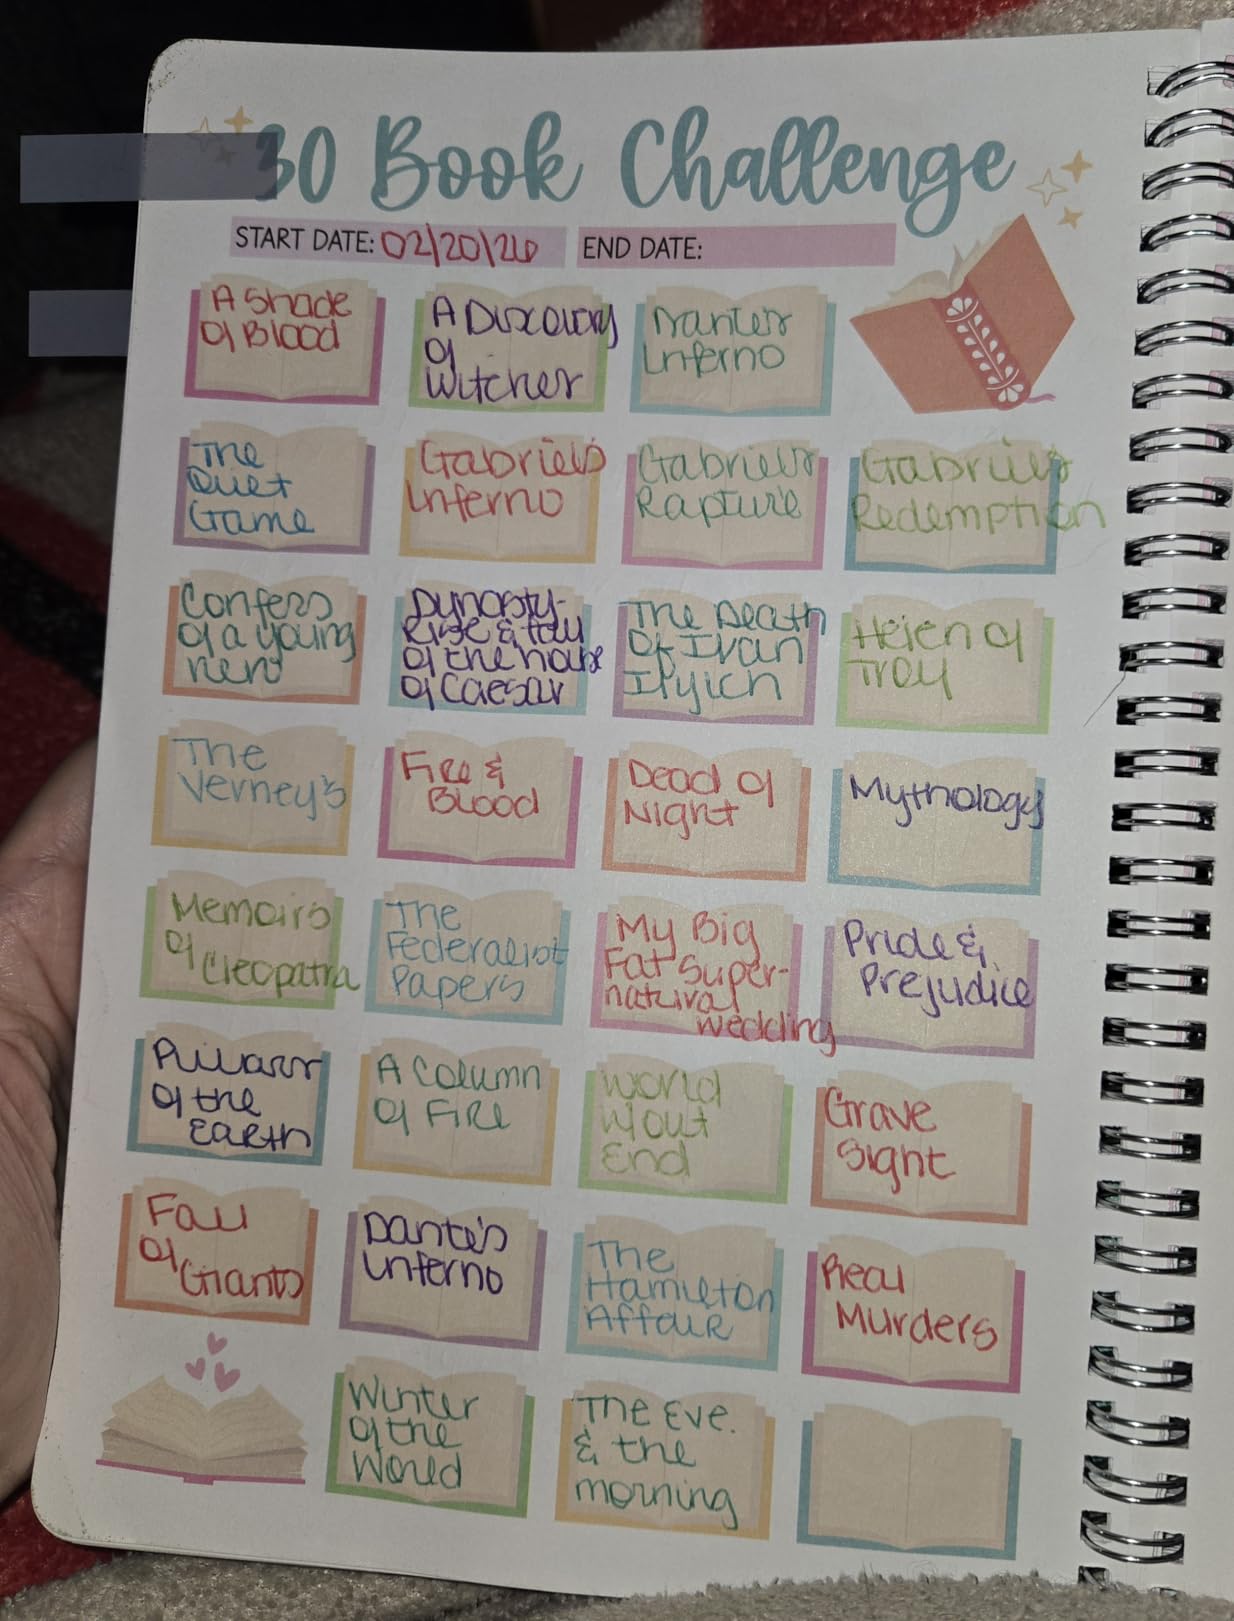 30 Book Challenge
START DATE: 02/20/26 END DATE:
A Shade
of Blood
A Discovery
of
Witches
Dante's
Inferno
The
Quiet
Game
Gabriel's
Inferno
Gabriel's
Rapture
Gabriel's
Redemption
Confess
of a young
nero
Dynasty-
Rise & Fall
of the house
of Caesar
The Death
Of Ivan
Ilyich
Helen of
Troy
The
Verney's
Fire &
Blood
Dead of
Night
Mythology
Memoirs
of Cleopatra
The
Federalist
Papers
My Big
Fat Super-
natural
wedding
Pride &
Prejudice
Pillars
of the
Earth
A Column
of Fire
World
w/out
End
Grave
Sight
Fall
of Giants
Dante's
Inferno
The
Hamilton
Affair
Real
Murders
Winter
of the
World
The Eve.
& the
morning